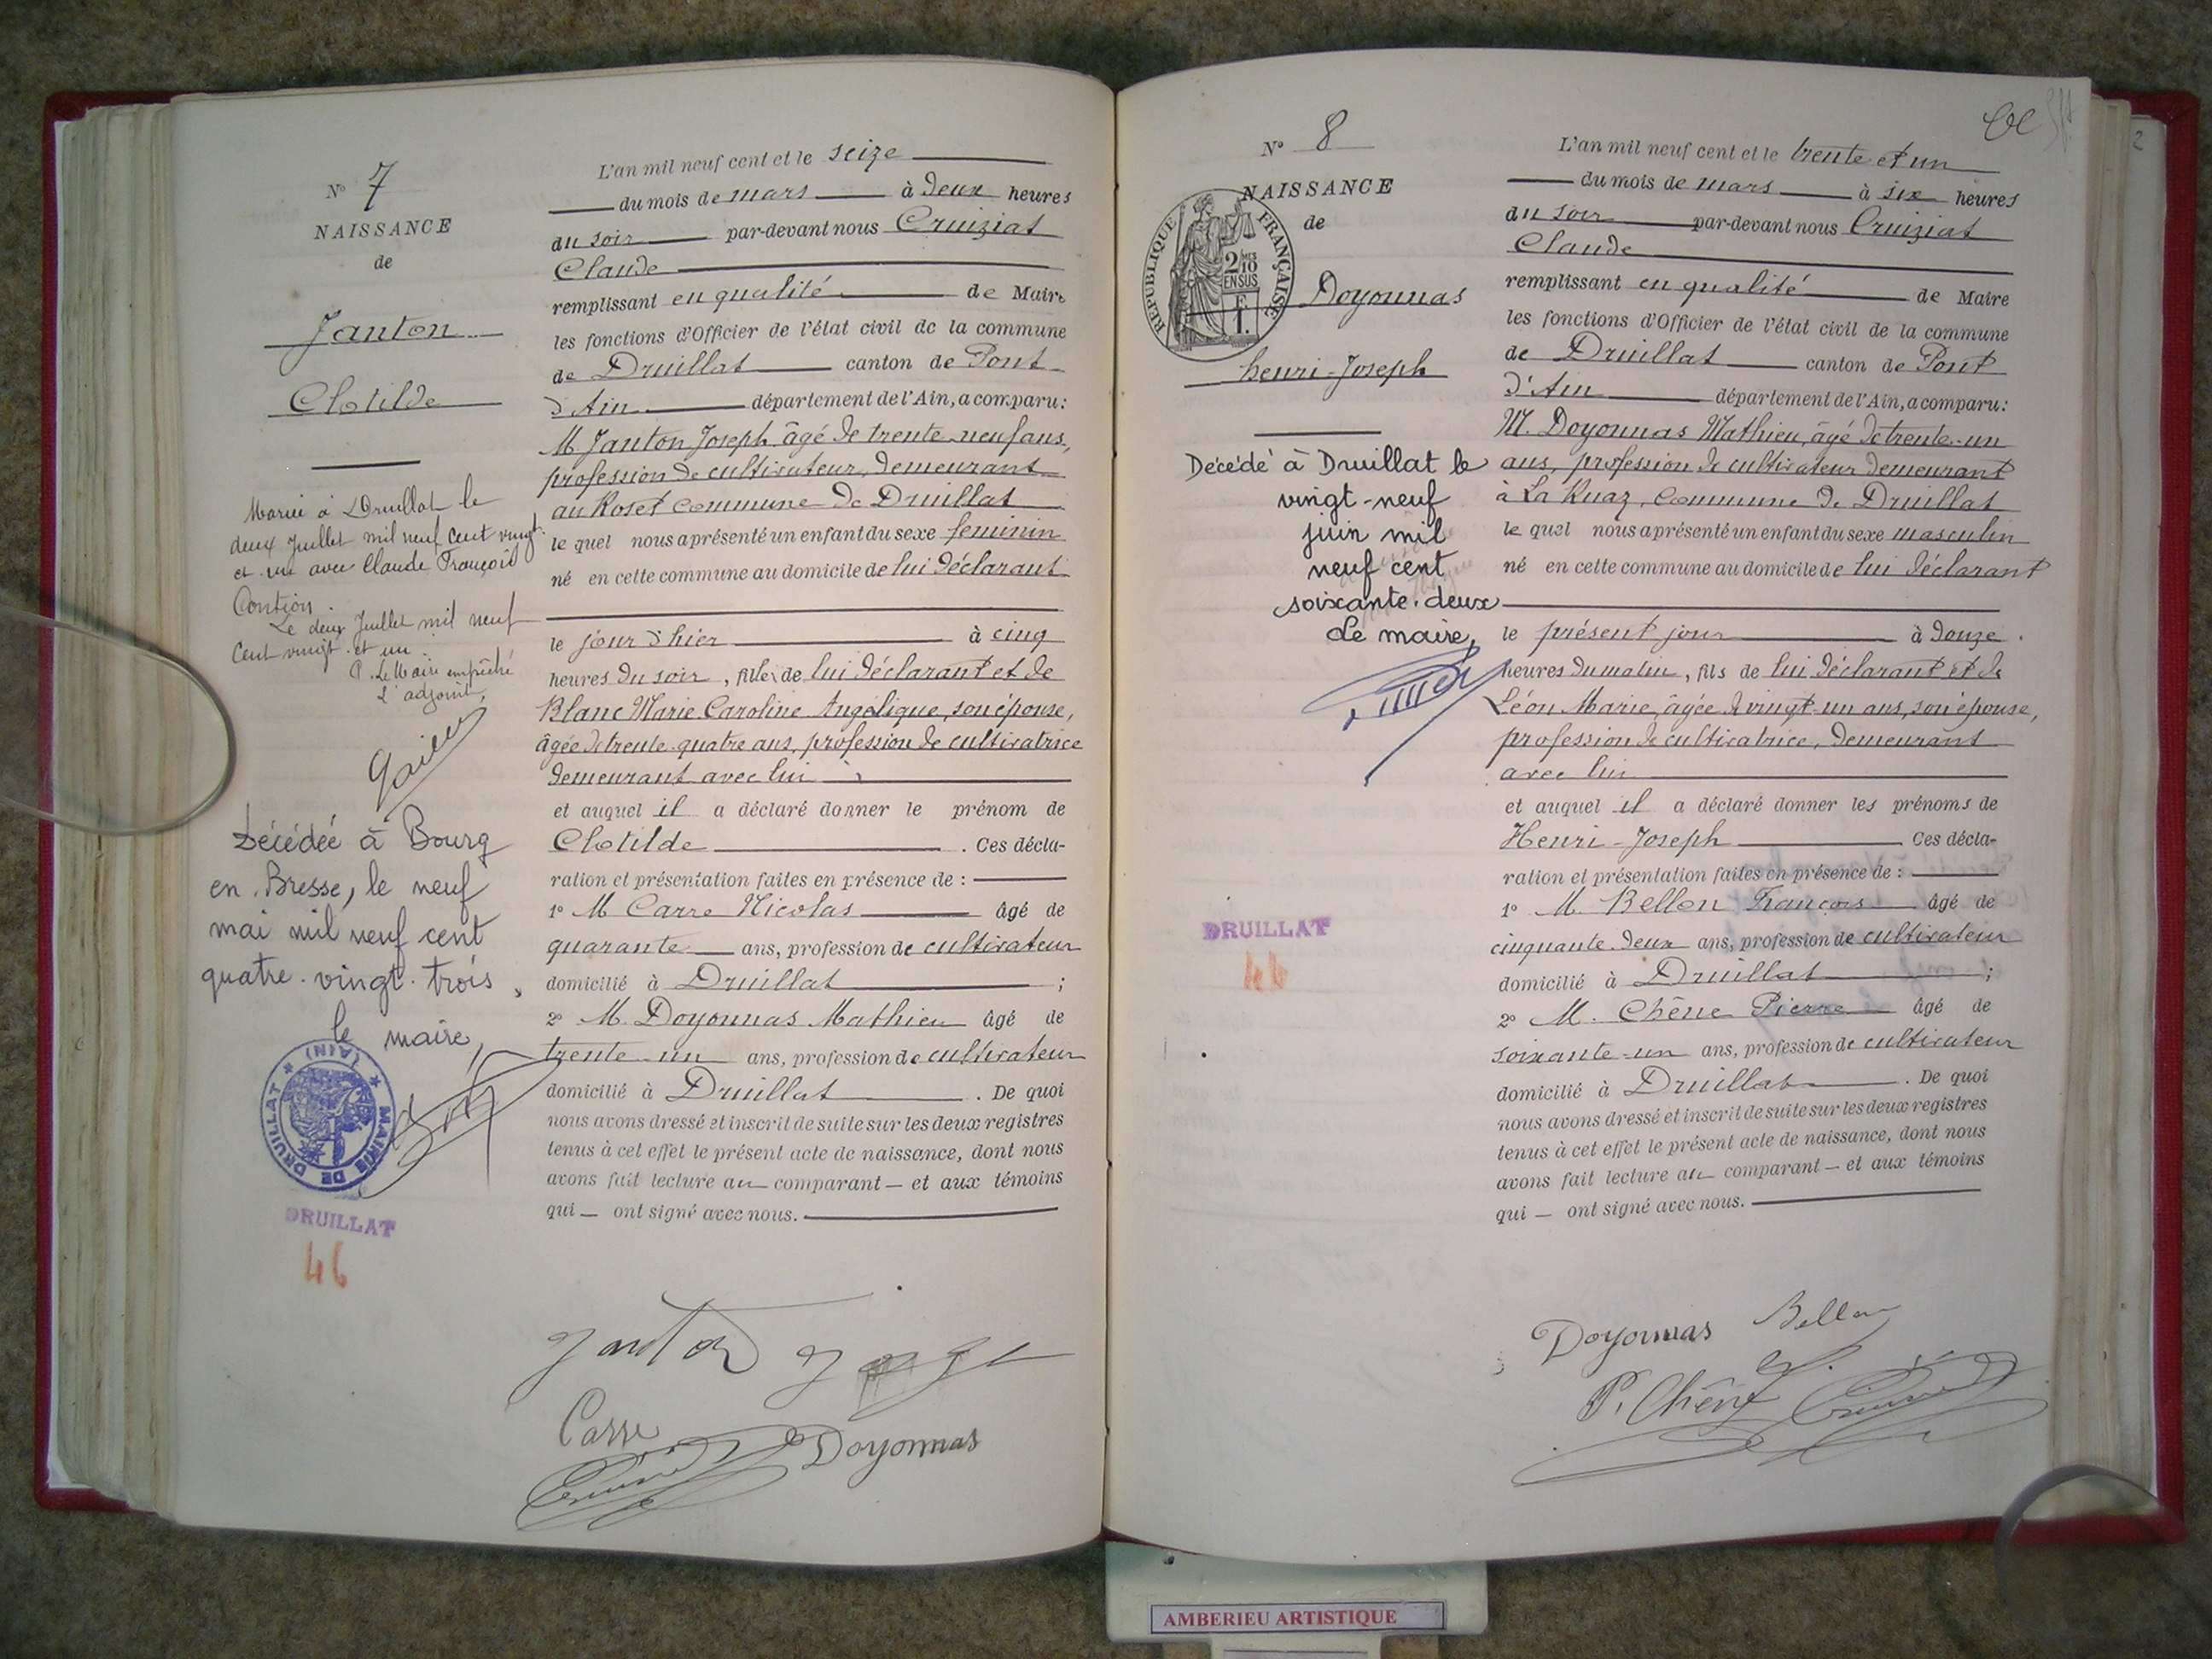 N° 7
NAISSANCE
de
Janton
Clotilde
Mariée à Druillat le
deux Juillet mil neuf cent vingt
et un avec Claude François
Contion.
Le deux Juillet mil neuf
cent vingt et un.
P. Le Maire empêché
L'adjoint,
Décédée à Bourg
en Bresse, le neuf
mai mil neuf cent
quatre-vingt-trois,
le maire,
MAIRIE DE DRUILLAT
(AIN)
DRUILLAT
46
L'an mil neuf cent et le seize
du mois de mars à deux heures
du soir par-devant nous Cruiziat
Claude
remplissant en qualité de Maire
les fonctions d'Officier de l'état civil de la commune
de Druillat canton de Pont
d'Ain département de l'Ain, a comparu:
M. Janton Joseph âgé de trente-neuf ans,
profession de cultivateur, demeurant
au Roset commune de Druillat
le quel nous a présenté un enfant du sexe féminin
né en cette commune au domicile de lui déclarant
le jour d'hier à cinq
heures du soir, fille de lui déclarant et de
Blanc Marie Caroline Angélique, son épouse,
âgée de trente-quatre ans, profession de cultivatrice
demeurant avec lui
et auquel il a déclaré donner le prénom de
Clotilde . Ces décla-
ration et présentation faites en présence de :
1° M Carre Nicolas âgé de
quarante ans, profession de cultivateur
domicilié à Druillat ;
2° M. Doyonnas Mathieu âgé de
trente-un ans, profession de cultivateur
domicilié à Druillat . De quoi
nous avons dressé et inscrit de suite sur les deux registres
tenus à cet effet le présent acte de naissance, dont nous
avons fait lecture au comparant — et aux témoins
qui — ont signé avec nous.
Janton
Carre
Doyonnas
N° 8
NAISSANCE
de
RÉPUBLIQUE FRANÇAISE
2/10 EN SUS
Doyonnas
henri-Joseph
Décédé à Druillat le
vingt-neuf
juin mil
neuf cent
soixante-deux
Le maire,
DRUILLAT
46
L'an mil neuf cent et le trente et un
du mois de mars à six heures
du soir par-devant nous Cruiziat
Claude
remplissant en qualité de Maire
les fonctions d'Officier de l'état civil de la commune
de Druillat canton de Pont
d'Ain département de l'Ain, a comparu:
M. Doyonnas Mathieu, âgé de trente-un
ans, profession de cultivateur demeurant
à La Ruaz, commune de Druillat
le quel nous a présenté un enfant du sexe masculin
né en cette commune au domicile de lui déclarant
le présent jour à douze
heures du matin, fils de lui déclarant et de
Léon Marie, âgée de vingt-un ans, son épouse,
profession de cultivatrice, demeurant
avec lui
et auquel il a déclaré donner les prénoms de
Henri-Joseph Ces décla-
ration et présentation faites en présence de :
1° M. Bellon François âgé de
cinquante-deux ans, profession de cultivateur
domicilié à Druillat ;
2° M. Chêne Pierre âgé de
soixante-un ans, profession de cultivateur
domicilié à Druillat . De quoi
nous avons dressé et inscrit de suite sur les deux registres
tenus à cet effet le présent acte de naissance, dont nous
avons fait lecture au comparant — et aux témoins
qui — ont signé avec nous.
Doyonnas Bellon
P. Chêne
2
AMBERIEU ARTISTIQUE